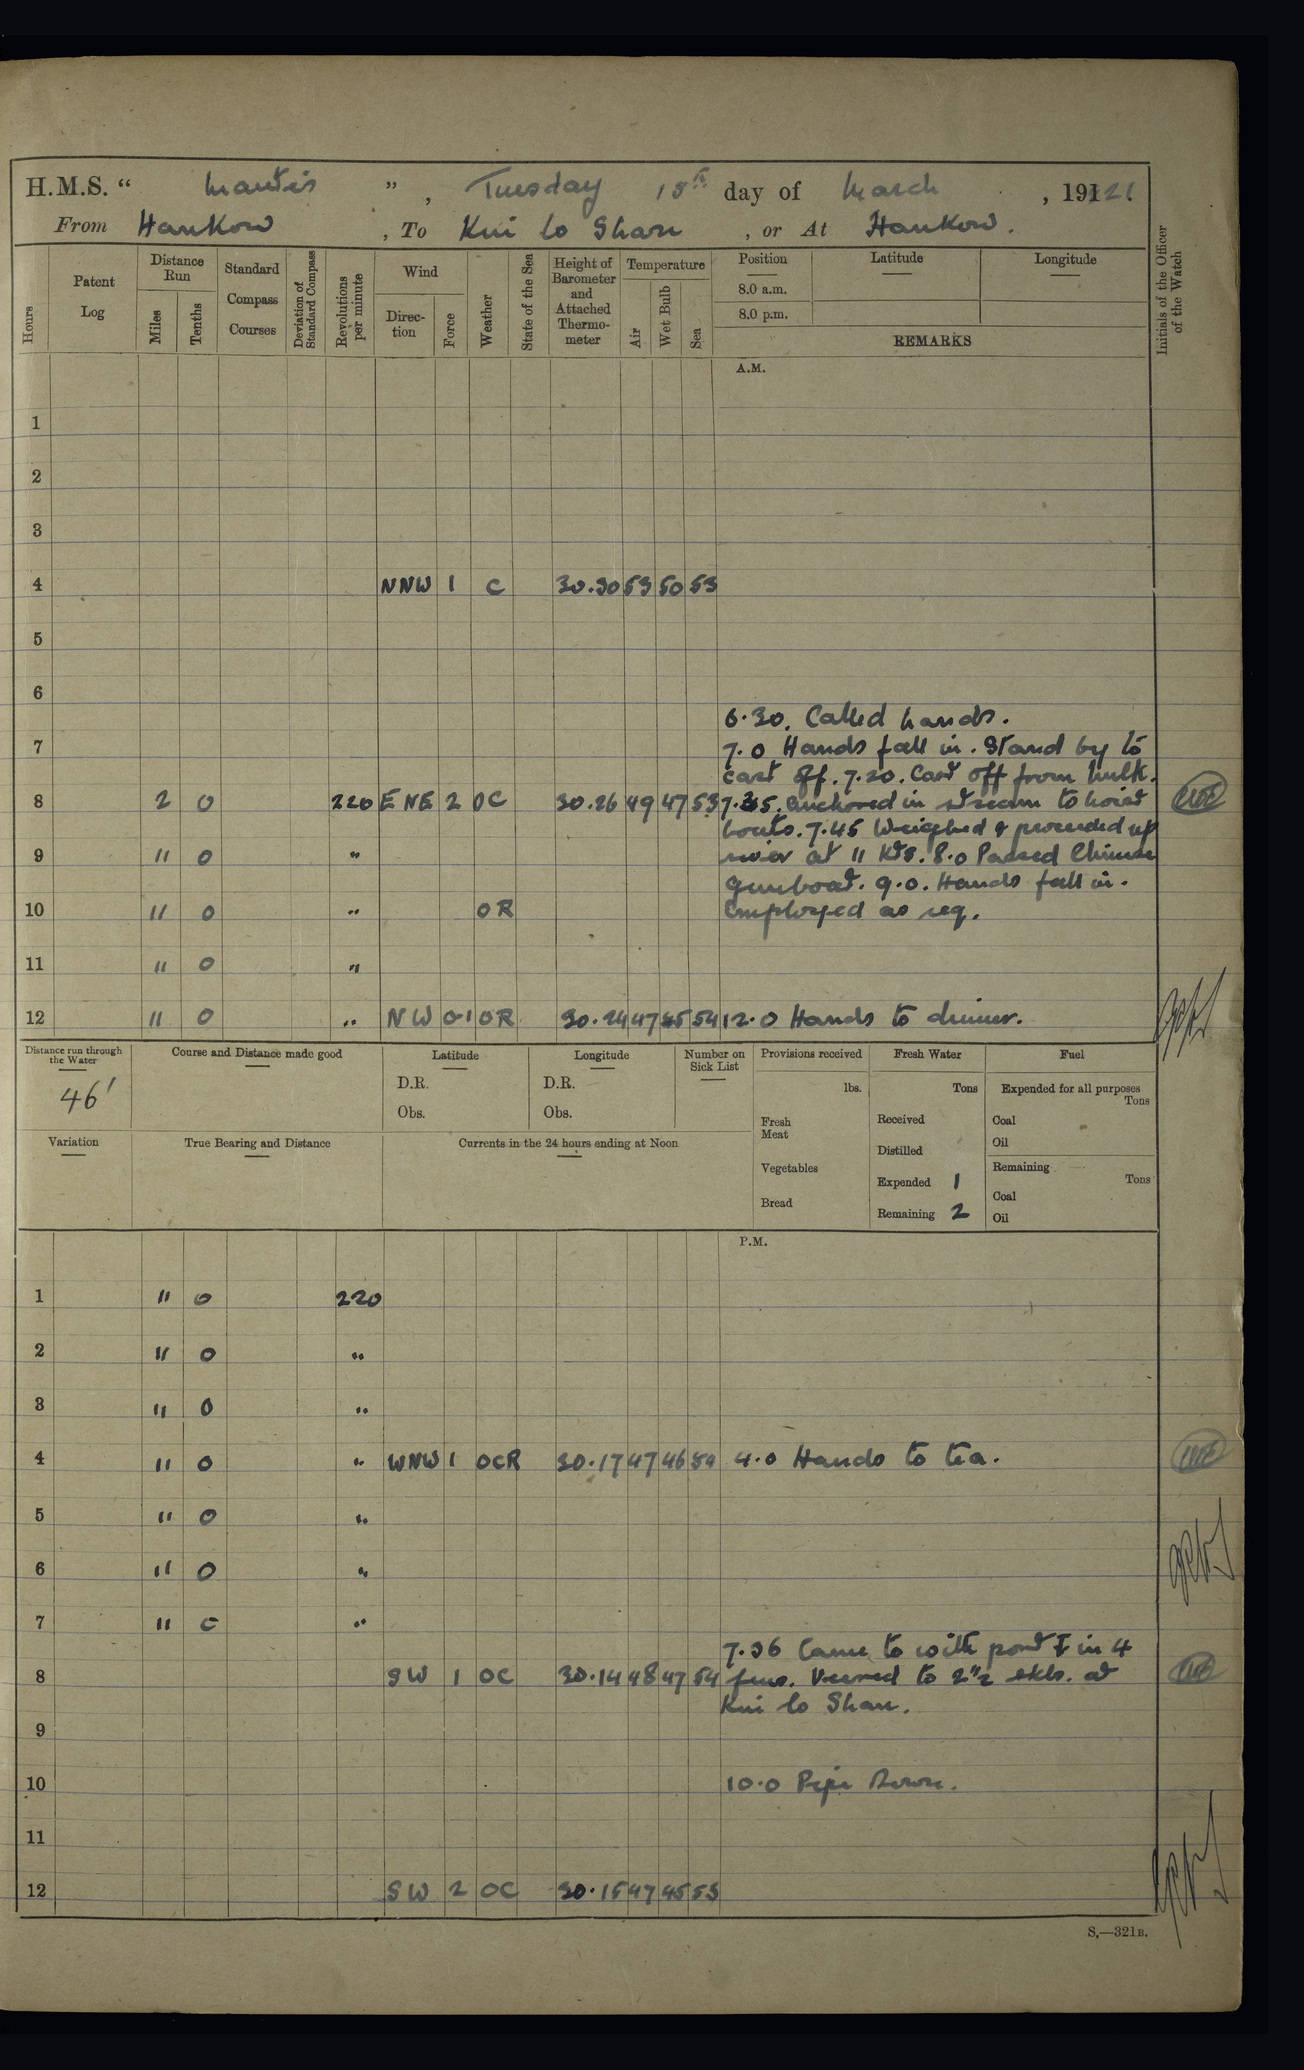 H.M.S. " Mantis ", Tuesday 15th day of March, 1921
From Hankow, To Kui lo Shan, or At Hankow.
Hours Patent Log Distance Run Miles Tenths Standard Compass Courses Deviation of Standard Compass Revolutions per minute Wind Direction Force Weather State of the Sea Height of Barometer and Attached Thermometer Temperature Air Wet Bulb Sea Position Latitude Longitude Initials of the Officer of the Watch
8.0 a.m.
8.0 p.m.
REMARKS
A.M.
1
2
3
4 NNW 1 C 30.30 53 50 53
5
6
6.30. Called hands.
7 7.0 Hands fall in. Stand by to
cast off. 7.20. Cast off from hulk.
8 2 0 220 ENE 2 OC 30.26 49 47 53 7.35. Anchored in stream to hoist
boats. 7.45 Weighed & proceeded up
9 " 0 " river at 11 Kts. 8.0 Passed Chinese
gunboat. 9.0. Hands fall in.
10 " 0 " OR Employed as req.
11 " 0 "
12 " 0 " NW 0-1 OR 30.24 47 45 54 12.0 Hands to dinner.
Distance run through the Water Course and Distance made good Latitude Longitude Number on Sick List Provisions received Fresh Water Fuel
46' D.R. D.R. lbs. Tons Expended for all purposes Tons
Obs. Obs. Fresh Meat Received Coal
Variation True Bearing and Distance Currents in the 24 hours ending at Noon Distilled Oil
Vegetables Expended 1 Remaining Tons
Coal
Bread Remaining 2 Oil
P.M.
1 " 0 220
2 " 0 "
3 " 0 "
4 " 0 " WNW 1 OCR 30.17 47 46 54 4.0 Hands to tea.
5 " 0 "
6 " 0 "
7 " 0 "
7.36 Came to with port ⚓ in 4
8 SW 1 OC 30.14 48 47 54 fms. Veered to 2½ skls. at
Kui lo Shan.
9
10 10.0 Pipe Down.
11
12 SW 2 OC 30.15 47 45 53
S.—321B.